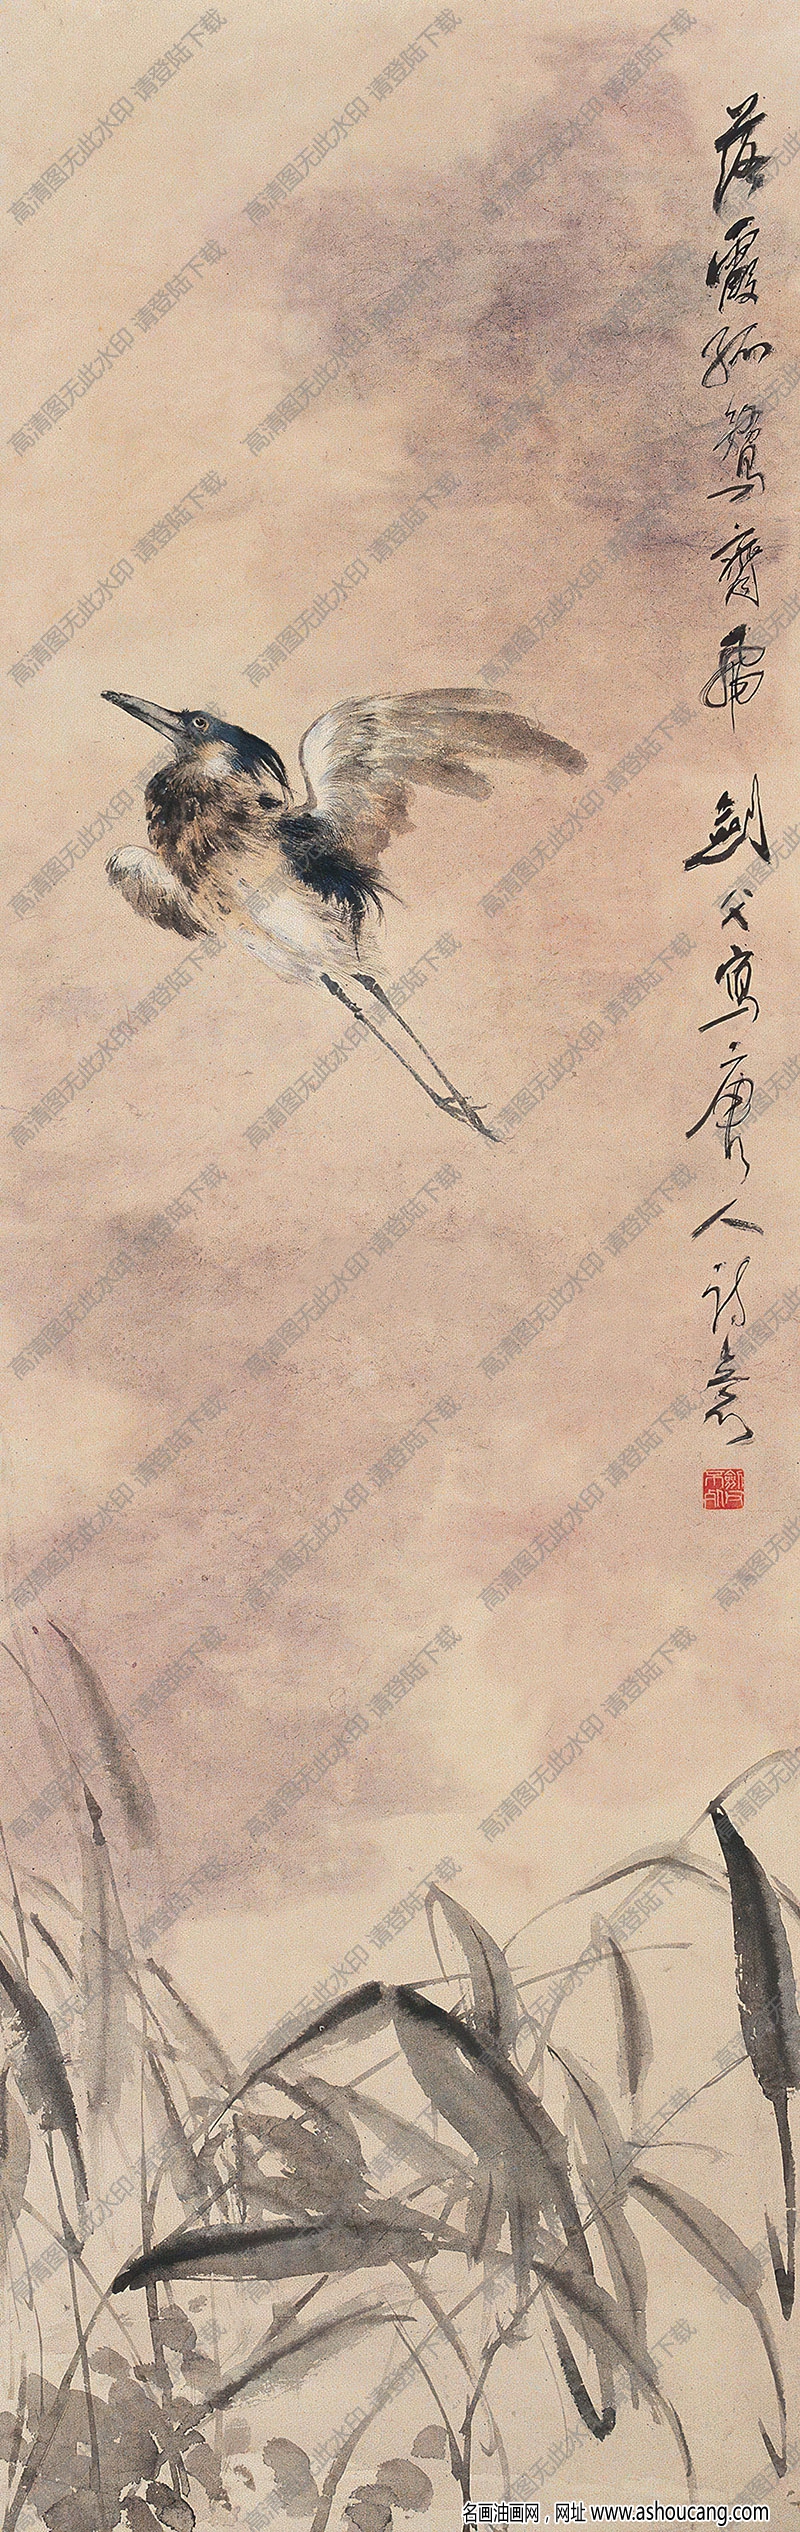 落霞孤鶩齊飛 劍父寫唐人詩意
高清图无此水印 请登陆下载
名画油画网，网址 www.ashoucang.com